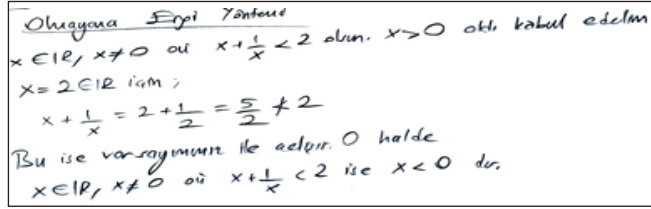 Olmayana Ergi Yöntemi
x ∈ IR, x ≠ 0 ve x + 1/x < 2 olsun. x > 0 kabul edelim
x = 2 ∈ IR için ;
x + 1/x = 2 + 1/2 = 5/2 ≮ 2
Bu ise varsayımımız ile çelişir. O halde
x ∈ IR, x ≠ 0 x + 1/x < 2 ise x < 0 dır.